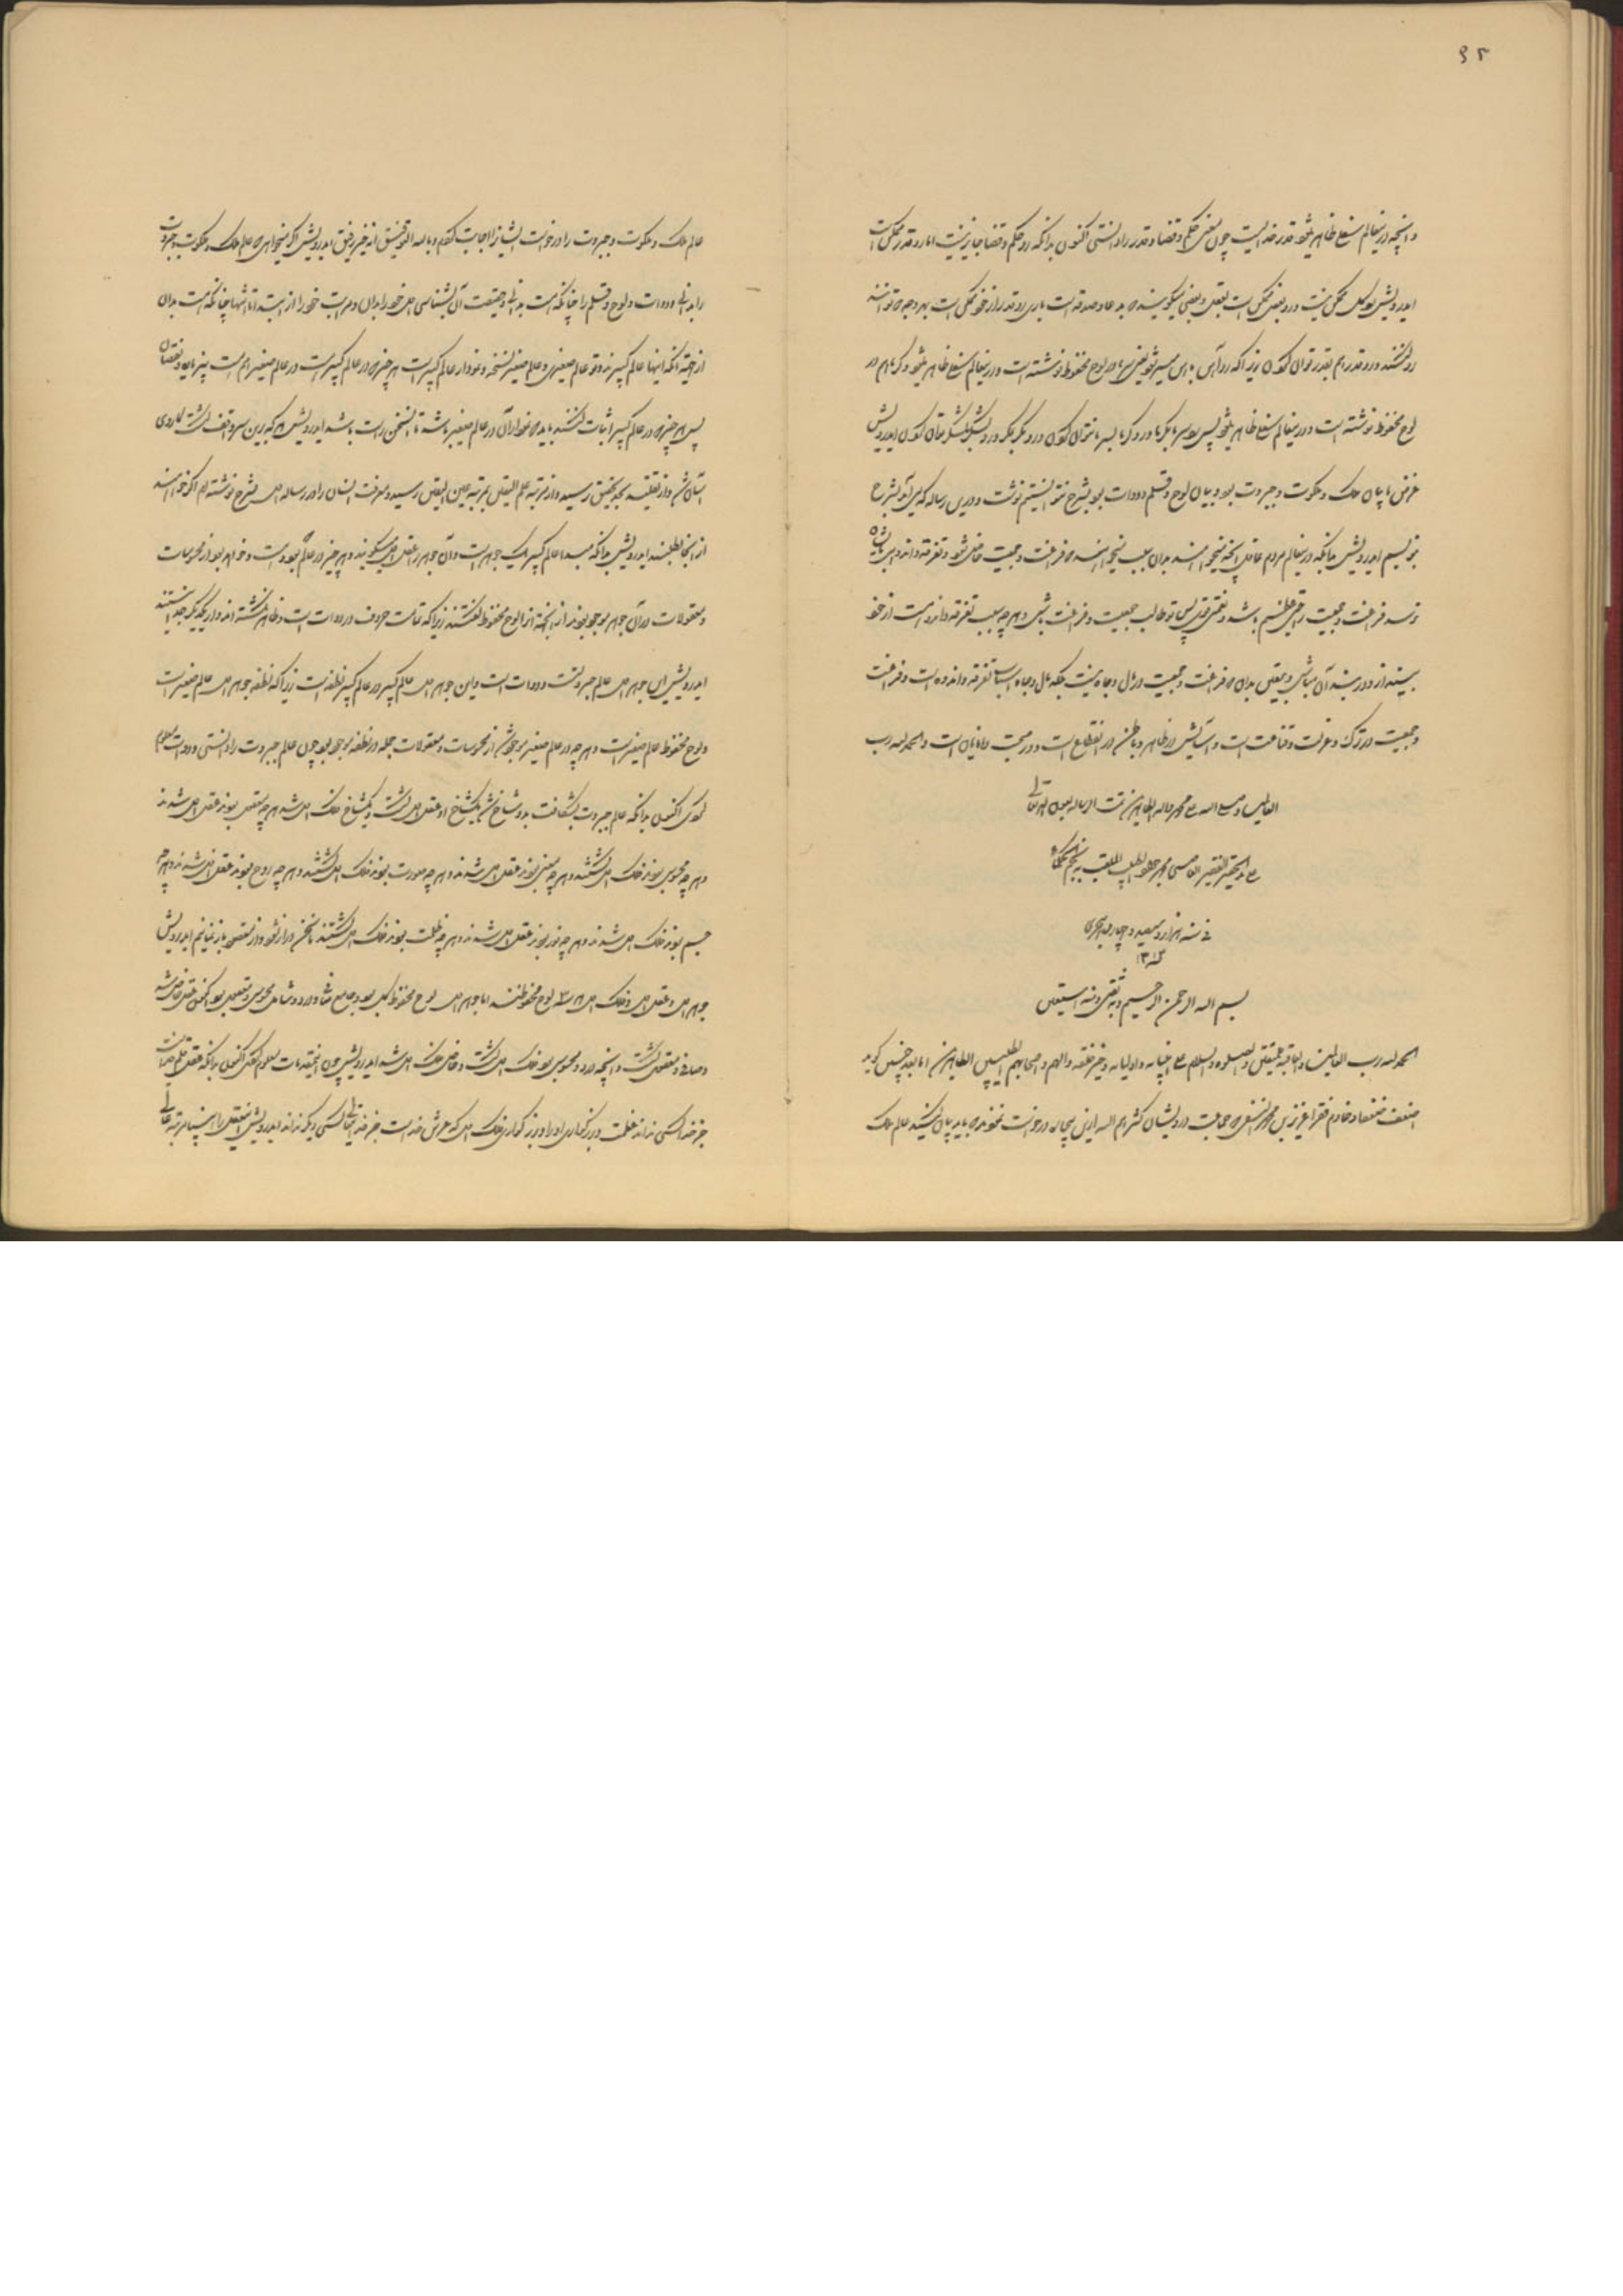 ۹۲
و آنچه در این عالم سفلی ظاهر میشود قدر خداست چون معنی حکم و قضا و قدر را دانستی اکنون بدانکه رد حکم و قضا جایز نیست اما رد قدر ممکن است
ایدرویش کل ممکن نیست و رد بعضی ممکن است بعقل و بعضی میگویند که بدعا و صدقه است باری رد قدر از خود ممکن است بهر وجه که توانند
رد کنند و رد قدر هم بقدر توان کردن زیرا که رد آهن بآهن میسر شود یعنی هم در لوح محفوظ نوشته است و در این عالم سفلی ظاهر میشود که ما هم در
لوح محفوظ نوشته است و در این عالم سفلی ظاهر میشود پس سرما بگرما و رد گرما بسرما توان کردن و رد مکر بمکر و رد لشکر بلشکر توان کردن ایدرویش
غرض ما بیان ملک و ملکوت و جبروت بود و بیان لوح و قلم و دوات بود بشرح نتوانستیم نوشت و در این رساله که می‌آید بشرح
بنویسیم ایدرویش بدانکه در این عالم مردم عاقل آنچه میخواهند بدان سبب میخواهند که فراغت و جمعیت حاصل شود و تفرقه و اندوه بایشان
نرسد فراغت و جمعیت راحتی عظیم باشد و نعمتی قوی پس تو طالب جمعیت و فراغت باش و هر چه سبب تفرقه و اندوه است از خود
بینداز و در بند آن مباش و بیقین بدان که فراغت و جمعیت در مال و جاه نیست بلکه مال و جاه اسباب تفرقه و اندوه است و فراغت
و جمعیت در ترک و عزلت و قناعت است و آسایش در ظاهر و باطن در انقطاع است و در صحبت دانایان است والحمد لله رب
العالمین و صلی الله علی محمد و آله الطاهرین تمت الرساله بعون الله تعالی
علی ید الحقیر الفقیر العاصی محمد الطبیب الملقب به
فی سنه هزار و سیصد و چهار هجری
۱۳۰۴
بسم الله الرحمن الرحیم و به ثقتی و منه استعین
الحمد لله رب العالمین والعاقبة للمتقین والصلوة والسلام علی انبیائه و اولیائه و خیر خلقه و آلهم و اصحابهم الطیبین الطاهرین اما بعد چنین گوید
اضعف ضعفا و خادم فقرا عزیز بن محمد النسفی که جماعت درویشان کثرهم الله ازین بیچاره درخواست نمودند که باید بیان کنید عالم ملک
عالم ملک و ملکوت و جبروت را درخواست ایشانرا اجابت کردم و بالله التوفیق انه خیر رفیق ایدرویش اگر میخواهی که عالم ملک و ملکوت و جبروت
را بدانی و دوات و لوح و قلم را چنانکه هست بدانی و حقیقت آن بشناسی اول خود را بدان و مراتب خود را از ابتدا تا انتها چنانکه هست بدان
از جهة آنکه اینها عالم کبیرند و تو عالم صغیری و عالم صغیر نسخه و نمودار عالم کبیر است هر چیزی که در عالم کبیر است در عالم صغیر هم هست بی زیاده و نقصان
پس هر چیزی که در عالم کبیر اثبات کنند باید که نمودار آن در عالم صغیر باشد تا آن سخن راست باشد ایدرویش هر که برین سر واقف گشت کار وی
آسان شد و از تقلید بحد تحقیق رسید و از مرتبه علم الیقین بمرتبه عین الیقین رسید و معرفت انسان را در رساله اول بشرح نوشته ام اگر خواهند
از آنجا بطلبند ایدرویش بدانکه مبداء عالم کبیر یک جوهر است و آن جوهر را عقل اول میگویند و هر چیز در عالم بوده است و خواهد بود از محسوسات
و معقولات در آن جوهر موجود بودند از این جهة او را لوح محفوظ گفتند زیرا که تمامت حروف در دوات است و ظاهر نگشته اند و از یکدیگر جدا نیستند
ایدرویش این جوهر اول عالم جبروتست و دوات است و این جوهر اول عالم کبیر در عالم کبیر نطفه است زیرا که نطفه جوهر اول عالم صغیر است
و لوح محفوظ عالم صغیر است و هر چه در عالم صغیر موجود شد از محسوسات و معقولات جمله در نطفه موجود بود چون عالم جبروت را دانستی و دوات معلوم
کردی اکنون بدانکه عالم جبروت بشکافت بدو شاخ شد یکشاخ او عقل اول گشت و یکشاخ فلک اول شد هر چه معقول بودند عقل اول شدند
و هر چه محسوس بودند فلک اول گشتند و هر چه معنی بودند عقل اول شدند و هر چه صورت بودند فلک اول گشتند و هر چه روح بودند عقل اول شدند و هر چه
جسم بودند فلک اول شدند و هر چه نور بودند عقل اول شدند و هر چه ظلمت بودند فلک اول گشتند تا سخن دراز نشود و از مقصود باز نمانیم ایدرویش
جوهر اول و عقل اول و فلک اول هر سه لوح محفوظند اما جوهر اول لوح محفوظ کل بود و جامع و شامل محسوس و معقول بود اکنون عقل خاص شد
و صافی و معقول گشت و آنچه درد و محسوس بود فلک اول گشت و خاص فلک اول شد ایدرویش چون این مقدمات معلوم کردی اکنون بدانکه عقل قلم خداست
جز خدا کسی نداند عظمت و بزرگواری او را و بزرگواری فلک اول که عرش خداست جز خدای تعالی کسی دیگر نداند ایدرویش این عقل را بسی مرتبه عالی